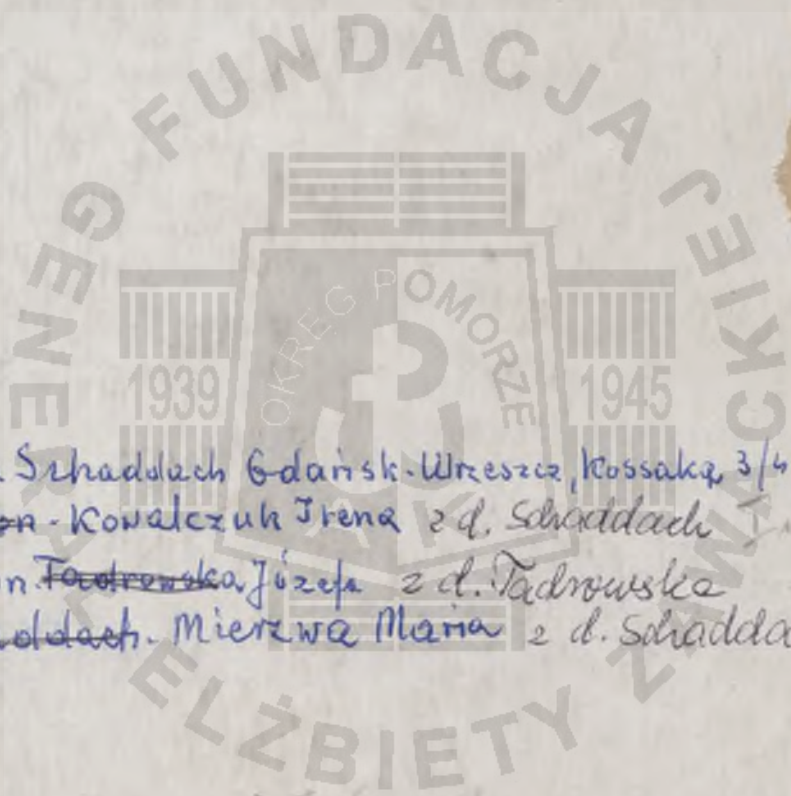 FUNDACJA GENERAŁ ELŻBIETY ZAWACKIEJ
OKRĘG POMORZE
1939 1945
AK
. Schaddach Gdańsk-Wrzeszcz, Kossaka 3/4
zn - Kowalczuk Irena z d. Schaddach
n. Tadrowska Józefa z d. Tadrowska
oddach. Mierzwa Maria z d. Schaddac